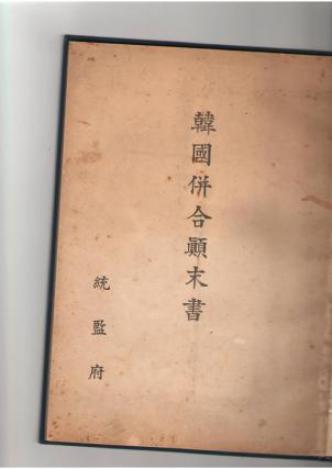 韓國併合顚末書
統監府